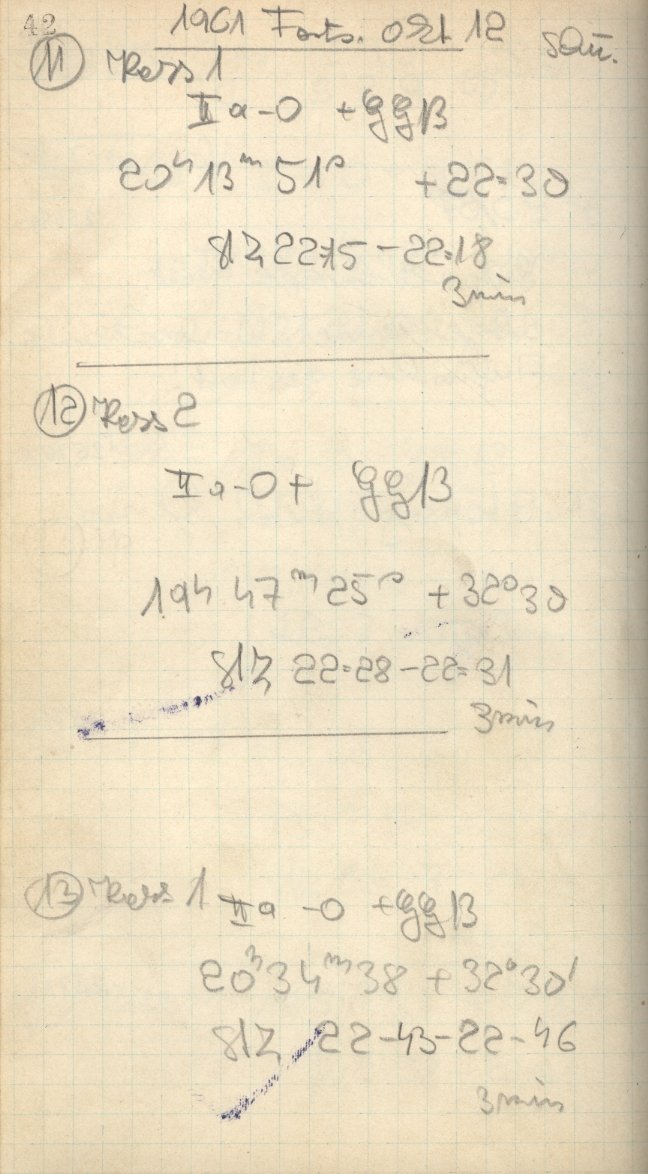 42
1961 Forts. Okt 12
11 Kass 1
II a-0 + GG13
20h 13m 51s +22:30
S12 22:15 - 22:18
3 min
12 Kass 2
II a-0 + GG13
19h 47m 25s +32°30
S12 22:28 - 22:31
3 min
13 Kass 1 II a -0 + GG13
20h 34m 38 +32°30'
S12 22-43-22-46
3 min